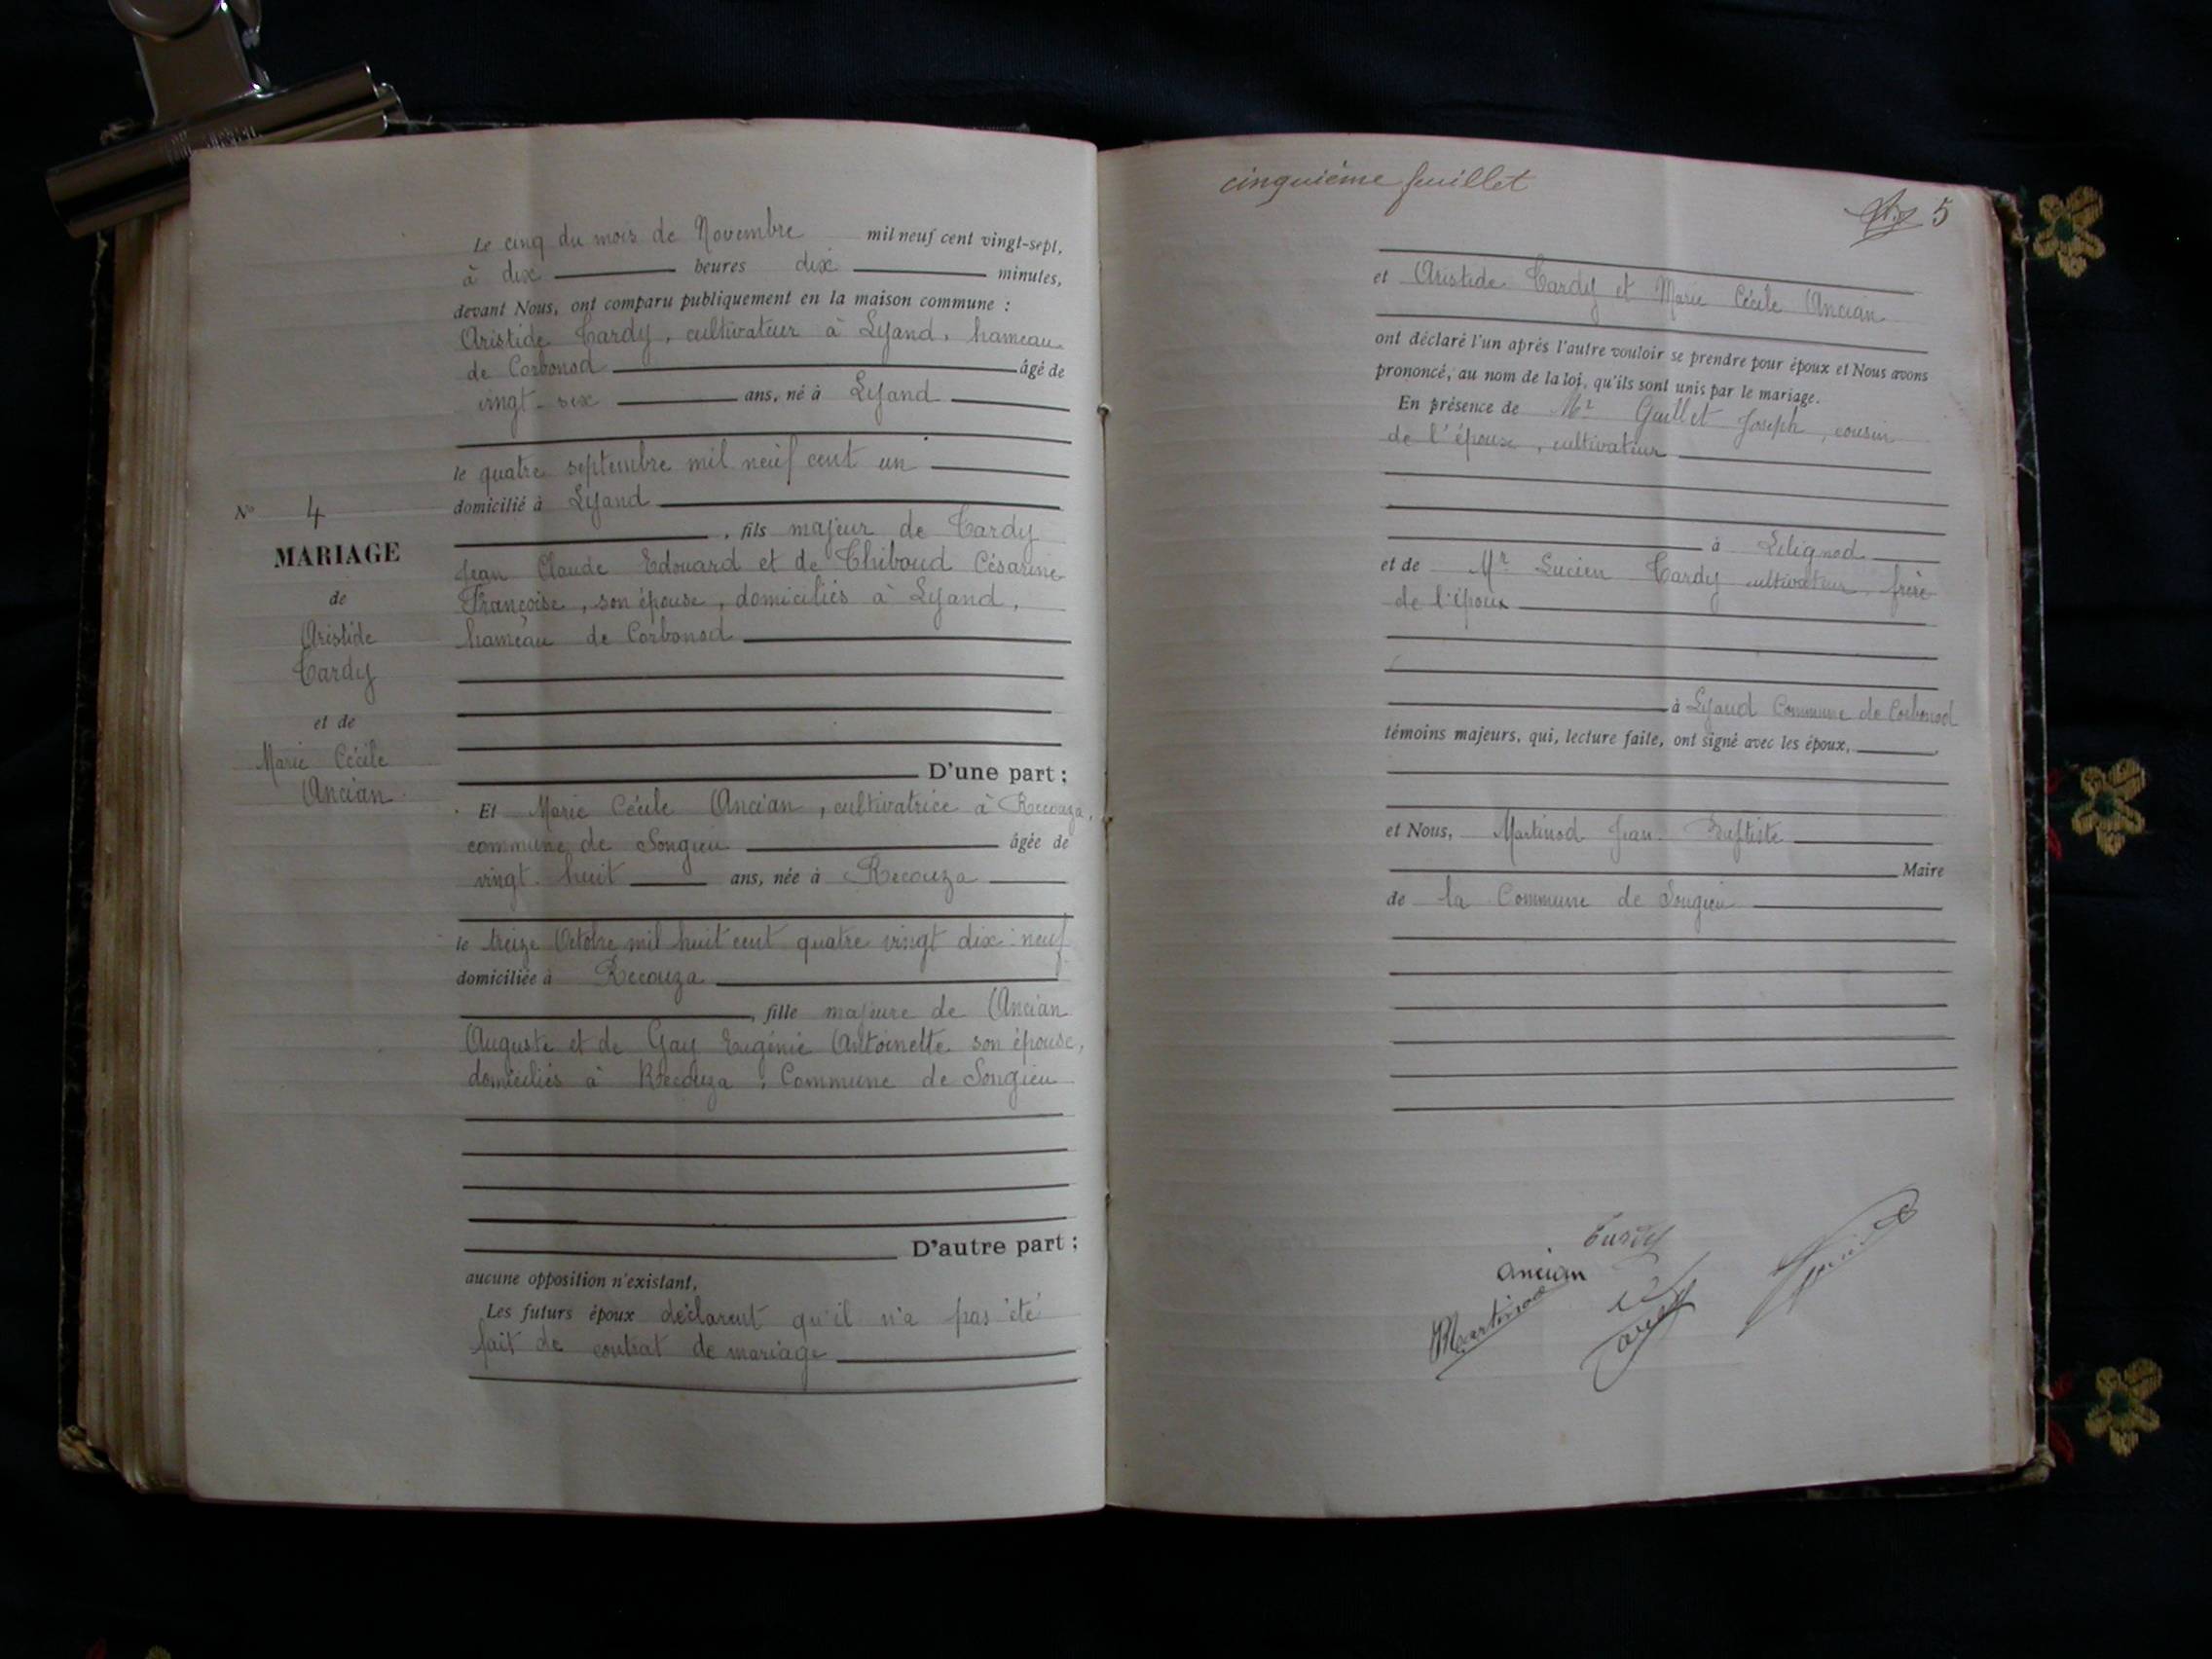 Le cinq du mois de Novembre mil neuf cent vingt-sept,
à dix heures dix minutes,
devant Nous, ont comparu publiquement en la maison commune :
Aristide Tardy, cultivateur à Lyand, hameau
de Corbonod âgé de
vingt-six ans, né à Lyand
le quatre septembre mil neuf cent un
domicilié à Lyand
, fils majeur de Tardy
Jean Claude Edouard et de Thiboud Césarine
Françoise, son épouse, domiciliés à Lyand,
hameau de Corbonod
N° 4
MARIAGE
de
Aristide
Tardy
et de
Marie Cécile
Ancian
D'une part ;
Et Marie Cécile Ancian, cultivatrice à Recouza,
commune de Songieu âgée de
vingt-huit ans, née à Recouza
le treize Octobre mil huit cent quatre vingt dix-neuf
domiciliée à Recouza
, fille majeure de Ancian
Auguste et de Gay Eugénie Antoinette son épouse,
domiciliés à Recouza, Commune de Songieu
D'autre part ;
aucune opposition n'existant,
Les futurs époux déclarent qu'il n'a pas été
fait de contrat de mariage
cinquième feuillet
5
et Aristide Tardy et Marie Cécile Ancian
ont déclaré l'un après l'autre vouloir se prendre pour époux et Nous avons
prononcé, au nom de la loi, qu'ils sont unis par le mariage.
En présence de Mr Guillet Joseph, cousin
de l'époux, cultivateur
à Lilignod
et de Mr Lucien Tardy cultivateur, frère
de l'époux
à Lyand Commune de Corbonod
témoins majeurs, qui, lecture faite, ont signé avec les époux,
et Nous, Martinod Jean-Baptiste
Maire
de la Commune de Songieu
Tardy
Ancian
Martinod